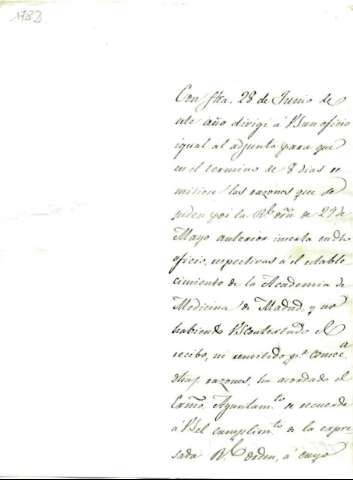 1783
Con fha. 28 de Junio de
este año dirigi á V. un oficio
igual al adjunto para que
en el termino de 8 dias re
mitiese las razones que se
piden por la Rl. orñ de 29 de
Mayo anterior inserta en dho
oficio, respectivas á el estable
cimiento de la Academia de
Medicina de Madrid, y no
habiendo V. contestado el
recibo, ni remitido pa. conoce
dhas razones, ha acordado el
Exmo. Ayuntamto. se recuerde
á V. el cumplimto. de la expre
sada Rl. orden, á cuyo